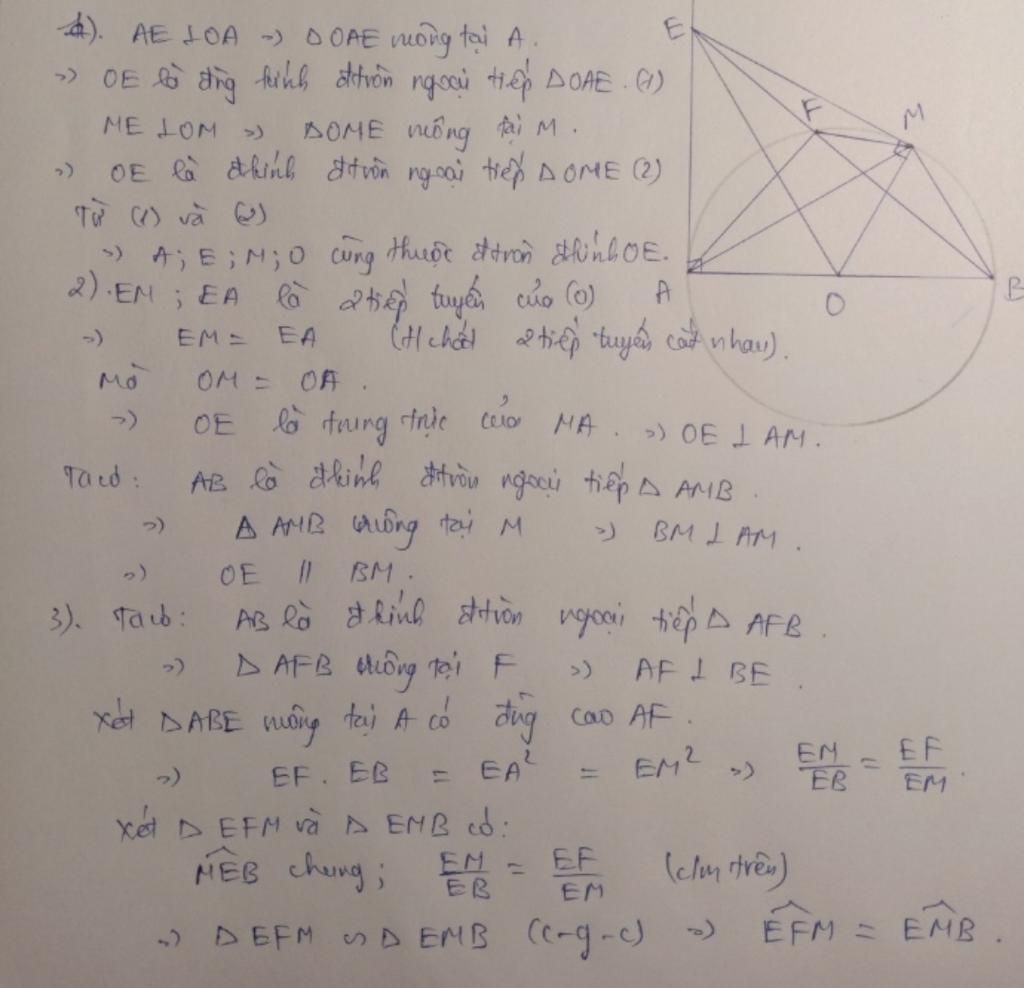 1). AE ⊥ OA => Δ OAE vuông tại A.
=> OE là đg kính đtròn ngoại tiếp Δ OAE. (1)
ME ⊥ OM => Δ OME vuông tại M.
=> OE là đkính đtròn ngoại tiếp Δ OME (2)
Từ (1) và (2)
=> A; E; M; O cùng thuộc đtròn đkính OE.
2). EM; EA là 2 tiếp tuyến của (O)
=> EM = EA (t/chất 2 tiếp tuyến cắt nhau).
Mà OM = OA.
=> OE là trung trực của MA. => OE ⊥ AM.
Ta có: AB là đkính đtròn ngoại tiếp Δ AMB.
=> Δ AMB vuông tại M => BM ⊥ AM.
=> OE // BM.
3). Ta có: AB là đkính đtròn ngoại tiếp Δ AFB.
=> Δ AFB vuông tại F => AF ⊥ BE.
Xét Δ ABE vuông tại A có đg cao AF.
=> EF. EB = EA² = EM² => EM/EB = EF/EM.
Xét Δ EFM và Δ EMB có:
MEB chung; EM/EB = EF/EM (c/m trên)
=> Δ EFM ∽ Δ EMB (c-g-c) => EFM = EMB.
E
F
M
A
O
B